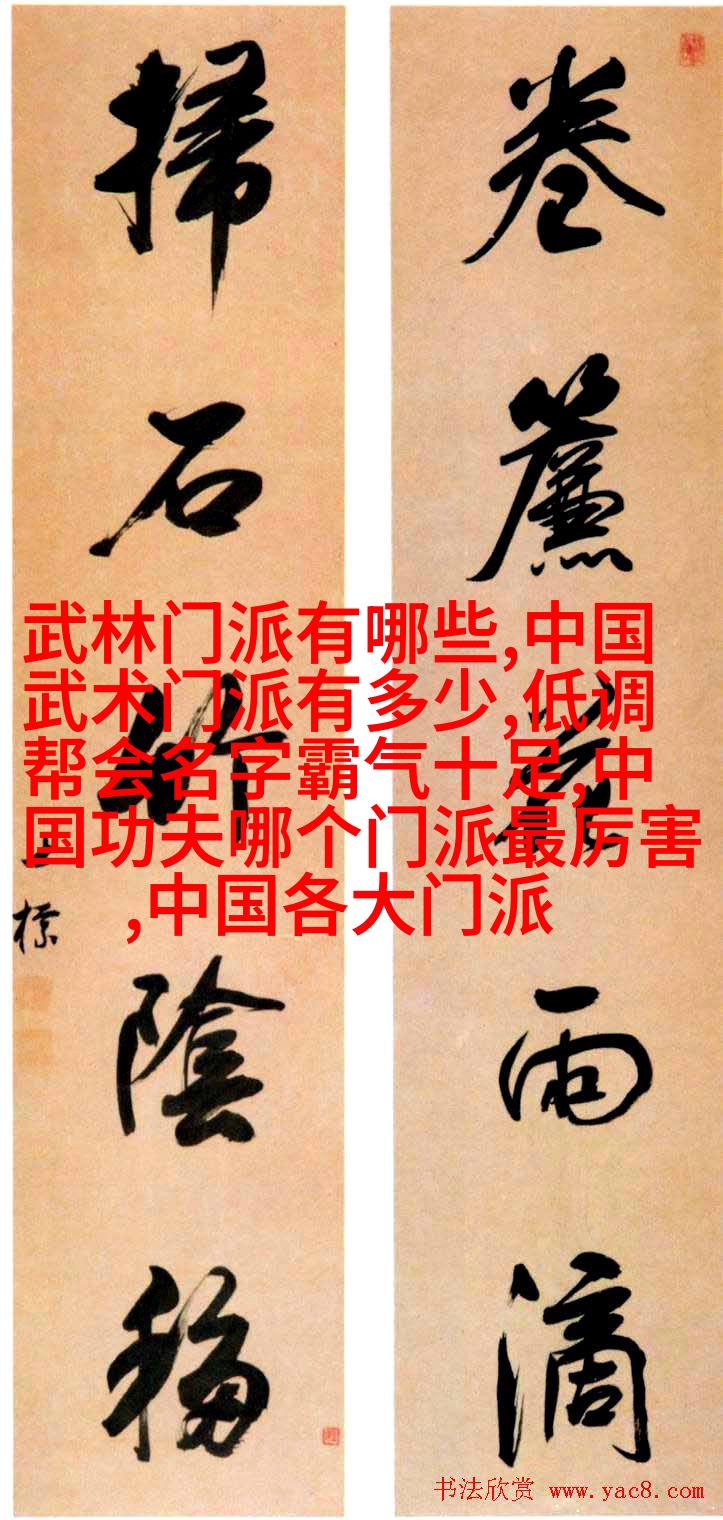 卷簾雨滴
掃石竹陰移
標
武林门派有哪些,中国
武术门派有多少,低调
帮会名字霸气十足,中
国功夫哪个门派最厉害
,中国各大门派
书法欣赏 www.yac8.com